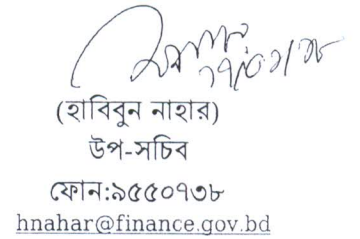 (হাবিবুন নাহার)
উপ-সচিব
ফোন:৯৫৫০৭৩৮
hnahar@finance.gov.bd